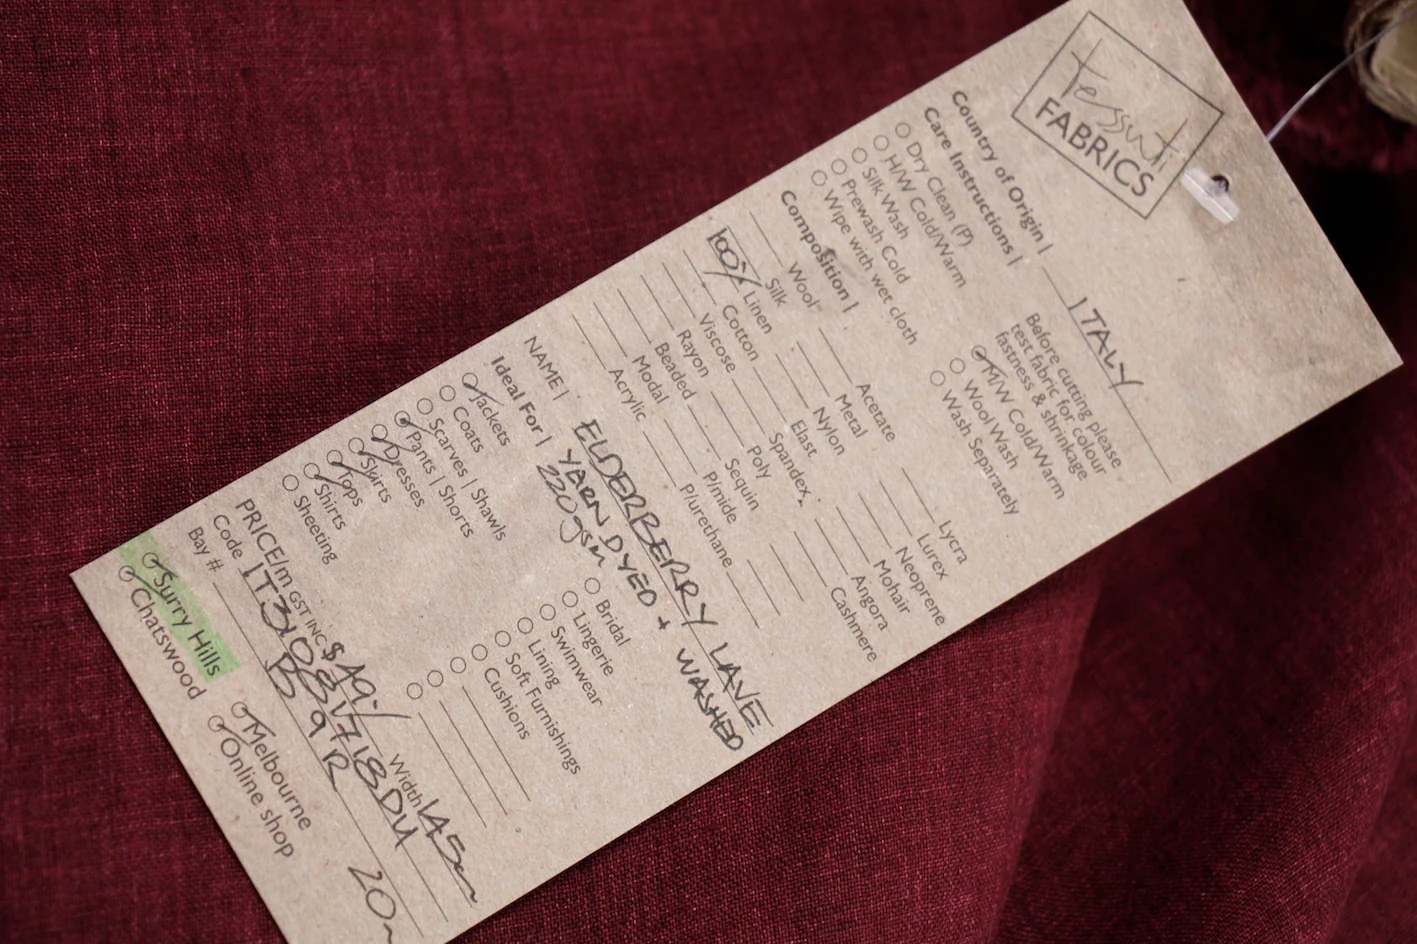 tessuti
FABRICS
Country of Origin | ITALY
Care Instructions |
Before cutting please
test fabric for colour
fastness & shrinkage
Dry Clean (P)
H/W Cold/Warm
Silk Wash
Prewash Cold
Wipe with wet cloth
M/W Cold/Warm
Wool Wash
Wash Separately
Composition |
Wool
Silk
100% Linen
Cotton
Viscose
Rayon
Beaded
Modal
Acrylic
Acetate
Metal
Nylon
Elast
Spandex
Poly
Sequin
P/mide
P/urethane
Lycra
Lurex
Neoprene
Mohair
Angora
Cashmere
NAME | ELDERBERRY LAVE
YARN DYED + WASHED
220gsm
Ideal For |
Jackets
Coats
Scarves | Shawls
Pants | Shorts
Dresses
Skirts
Tops
Shirts
Sheeting
Bridal
Lingerie
Swimwear
Lining
Soft Furnishings
Cushions
PRICE/m GST INC $49./ Width 145cm
Code IT31081718DU
Bay # B 9 R
Surry Hills
Chatswood
Melbourne
Online shop